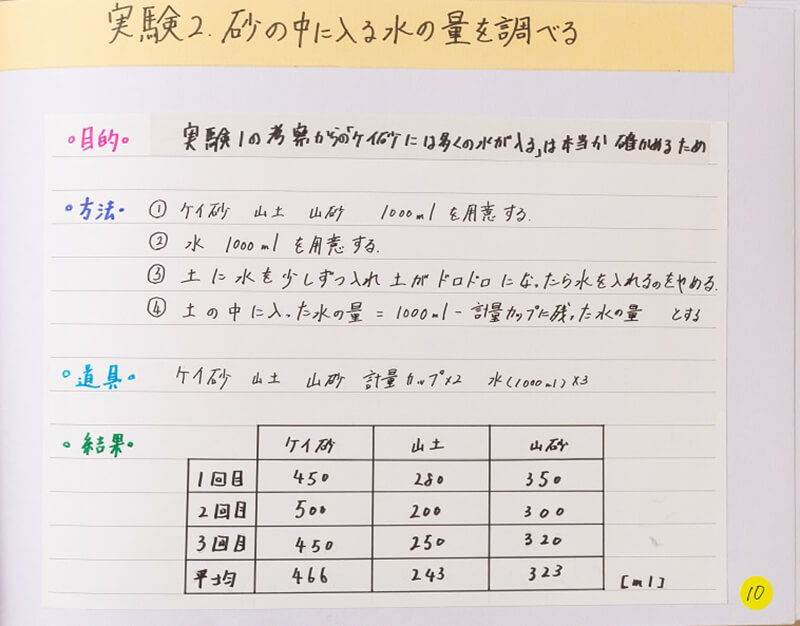 実験2. 砂の中に入る水の量を調べる
。目的。 実験1の考察からの「ケイ砂には多くの水が入る」は本当か 確かめるため
・方法・ ① ケイ砂 山土 山砂 1000ml を用意する.
② 水 1000ml を用意する.
③ 土に水を少しずつ入れ 土がドロドロになったら水を入れるのをやめる.
④ 土の中に入った水の量 = 1000ml - 計量カップに残った水の量 とする
。道具。 ケイ砂 山土 山砂 計量カップ×2 水(1000ml)×3
。結果。 ケイ砂 山土 山砂
1回目 450 280 350
2回目 500 200 300
3回目 450 250 320
平均 466 243 323 [ml]
10